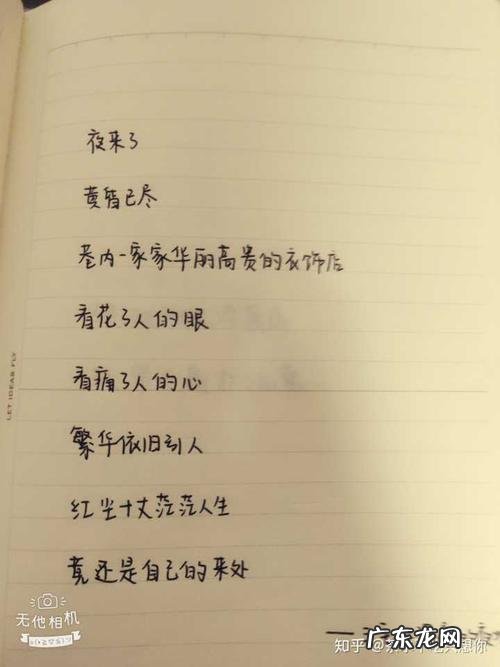 夜来了
黄昏已尽
巷内一家家华丽高贵的衣饰店
看花了人的眼
看痛了人的心
繁华依旧引人
红尘十丈茫茫人生
竟还是自己的来处
LET IDEAS FLY
无他相机
知乎
广东龙网